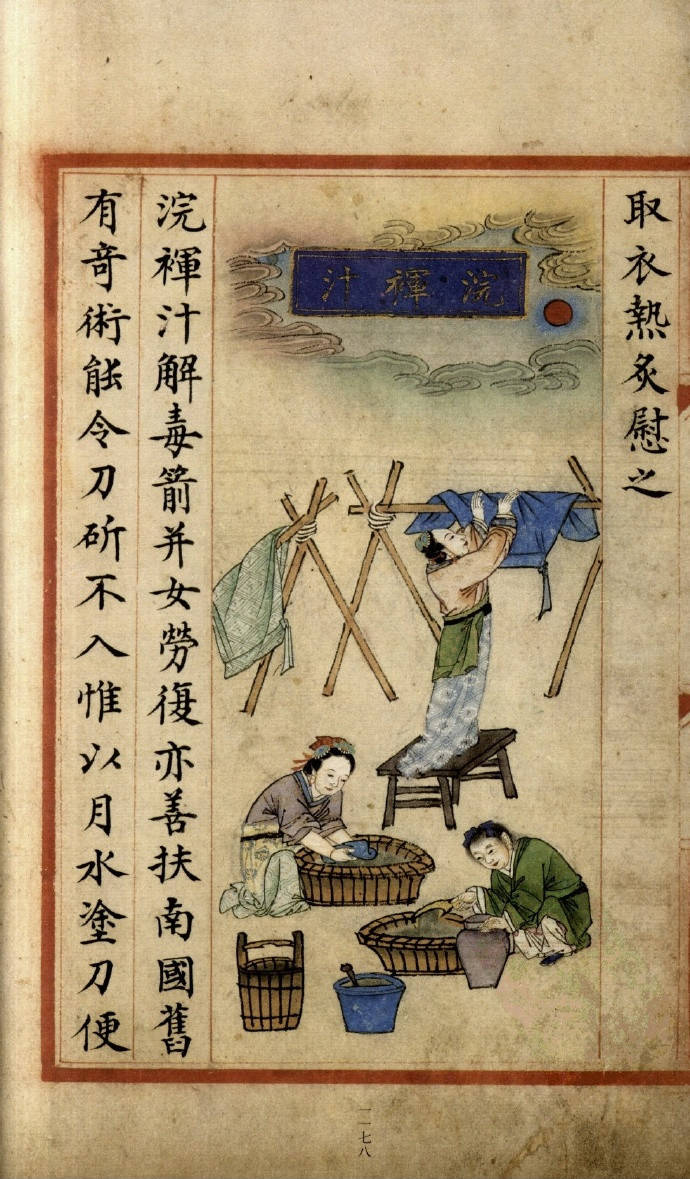 取衣熱炙慰之
浣褌汁
浣褌汁解毒箭并女勞復亦善扶南國舊
有竒術能令刀斫不入惟以月水塗刀便
一一七八